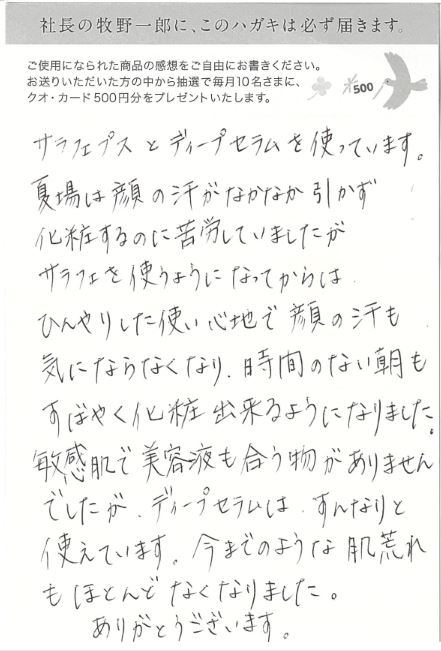 社長の牧野一郎に、このハガキは必ず届きます。
ご使用になられた商品の感想をご自由にお書きください。
お送りいただいた方の中から抽選で毎月10名さまに、
クオ・カード500円分をプレゼントいたします。
¥500
サラフェプラスとディープセラムを使っています。
夏場は顔の汗がなかなか引かず
化粧するのに苦労していましたが
サラフェを使うようになってからは
ひんやりした使い心地で顔の汗も
気にならなくなり、時間のない朝も
すばやく化粧出来るようになりました。
敏感肌で美容液も合う物がありません
でしたが、ディープセラムは、すんなりと
使えています。今までのような肌荒れ
もほとんどなくなりました。
ありがとうございます。